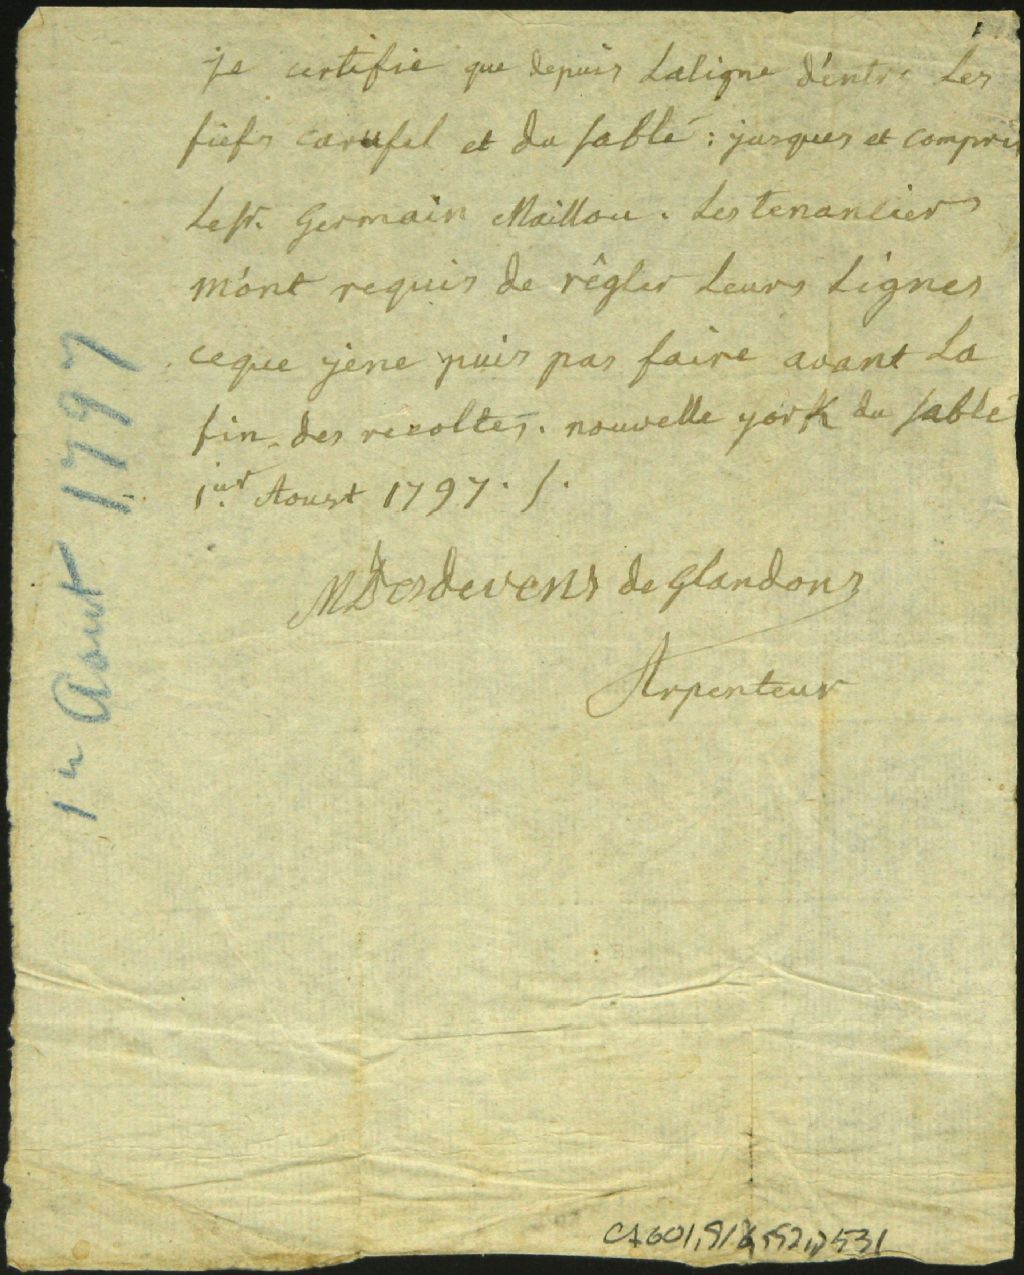 je certifie que depuis Laligne d'entre Les
fiefs carufel et du sablé : jusques et compris
Lesr. Germain Maillou. Les tenanciers
m'ont requis de règler Leurs Lignes
ceque jene puis pas faire avant La
fin des recoltes. nouvelle york du sablé
1ier Aoust 1797. /.
MDesdevens de Glandons
Arpenteur
1er Aout 1797
CA601,S1